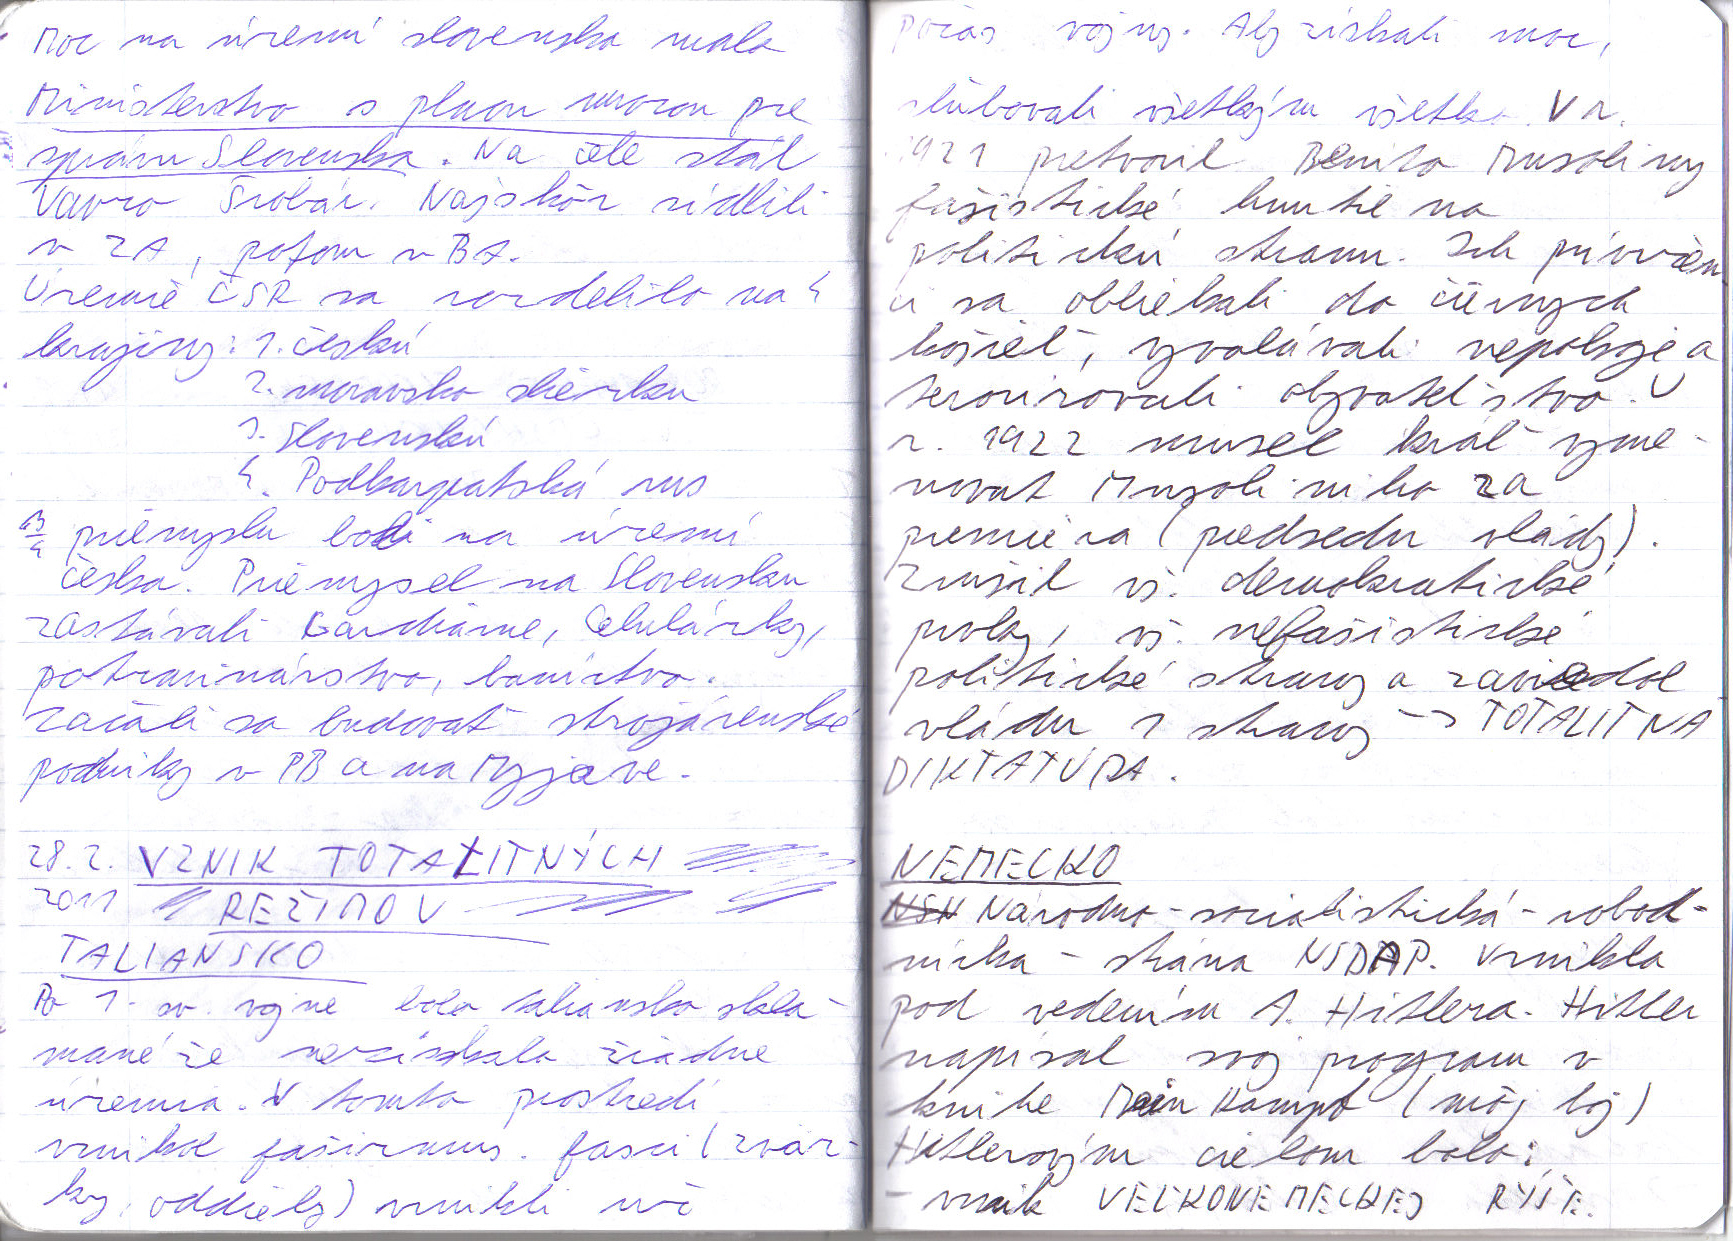 Moc na území slovenska mala
Ministerstvo s plnou mocou pre
správu Slovenska. Na čele stál
Vavro Šrobár. Najskôr sídlili
v ZA, potom v BA.
Územie ČSR sa rozdelilo na 4
krajiny: 1. česká
2. moravsko sliezku
3. Slovenskú
4. Podkarpatská rus
3/4 priemyslu boli na území
česka. Priemysel na Slovensku
zastávali Celulózky,
potravinárstvo, baníctvo.
Začali sa budovať strojárenské
podniky v PB a na Myjave.
28.2. VZNIK TOTALITNÝCH
2011 REŽIMOV
TALIANSKO
Po 1. sv. vojne bolo taliansko skla-
mané že nezískalo žiadne
územia. V tomto prostredí
vznikol fašizmus. fasci (zväz-
ky, oddiely) vznikli už
počas vojny. Aby získali moc,
sľubovali všetkým všetko. V r.
1921 pretvoril Benito Musoliny
fašistické hnutie na
politickú stranu. Ich prívržen
ci sa obliekali do čiernych
košieľ, vyvolávali nepokoje a
terorizovali obyvateľstvo. V
r. 1922 musel kráľ vyme-
novať Musoliniho za
premiéra (predsedu vlády).
Zrušil vš. demokratické
prvky, vš. nefašistické
politické strany a zaviedol
vládu 1 strany -> TOTALITNA
DIKTATÚRA.
NEMECKO
NSN Národno-socialistická-robot-
nícka - strana NSDAP. Vznikla
pod vedením A. Hitlera. Hitler
napísal svoj program v
knihe Mein Kampf (môj boj)
Hitlerovým cieľom bolo:
- vznik VEĽKONEMECKEJ RÝŠE.